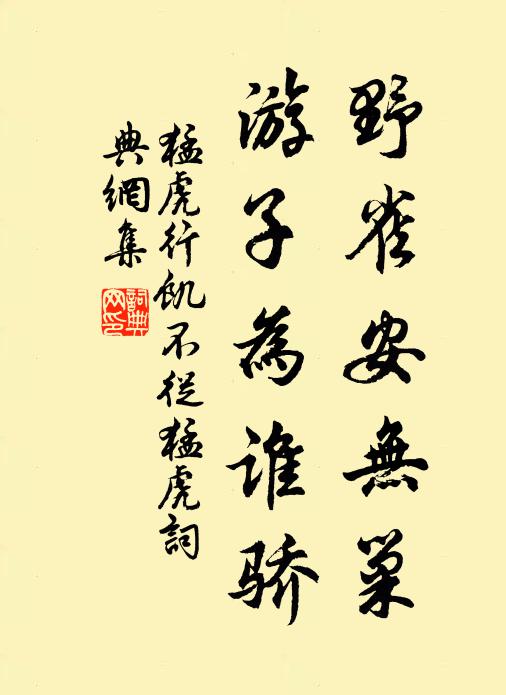 野雀安無巢
游子為誰骄
猛虎行飢不從猛虎詞
典網集
詞典網印